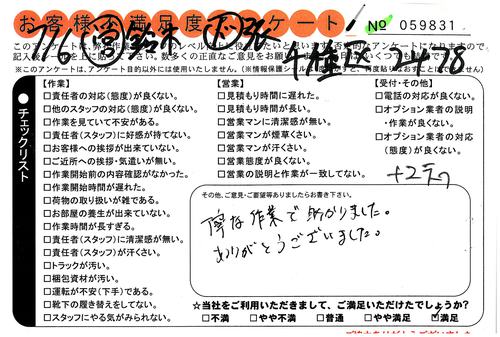 お客様不満足度アンケート
№ 059831
7/6 鈴木
千種区 2478
【作業】
□責任者の対応(態度)が良くない。
□他のスタッフの対応(態度)が良くない。
□作業を見ていて不安がある。
□責任者(スタッフ)に好感が持てない。
□お客様への挨拶が出来ていない。
□ご近所への挨拶・気遣いが無い。
□作業開始前の内容確認がなかった。
□作業開始時間が遅れた。
□荷物の取り扱いが雑である。
□お部屋の養生が出来ていない。
□作業時間が長すぎる。
□責任者(スタッフ)に清潔感が無い。
□責任者(スタッフ)が汗くさい。
□トラックが汚い。
□梱包資材が汚い。
□運転が不安(下手)である。
□靴下の履き替えをしてない。
□スタッフにやる気がみられない。
【営業】
□見積もり時間に遅れた。
□見積もり時間が長い。
□営業マンに清潔感が無い。
□営業マンが煙草くさい。
□営業マンが汗くさい。
□営業態度が良くない。
□営業の説明と作業が一致してない。
【受付・その他】
□電話の対応が良くない。
□オプション業者の説明
・作業が良くない。
□オプション業者の対応
(態度)が良くない。
●チェックリスト
その他、ご意見・ご要望等ありましたらお書き下さい。
寧な作業で助かりました。
ありがとうございました。
☆当社をご利用いただきまして、ご満足いただけたでしょうか?
□不満 □やや不満 □普通 □やや満足 ☑満足